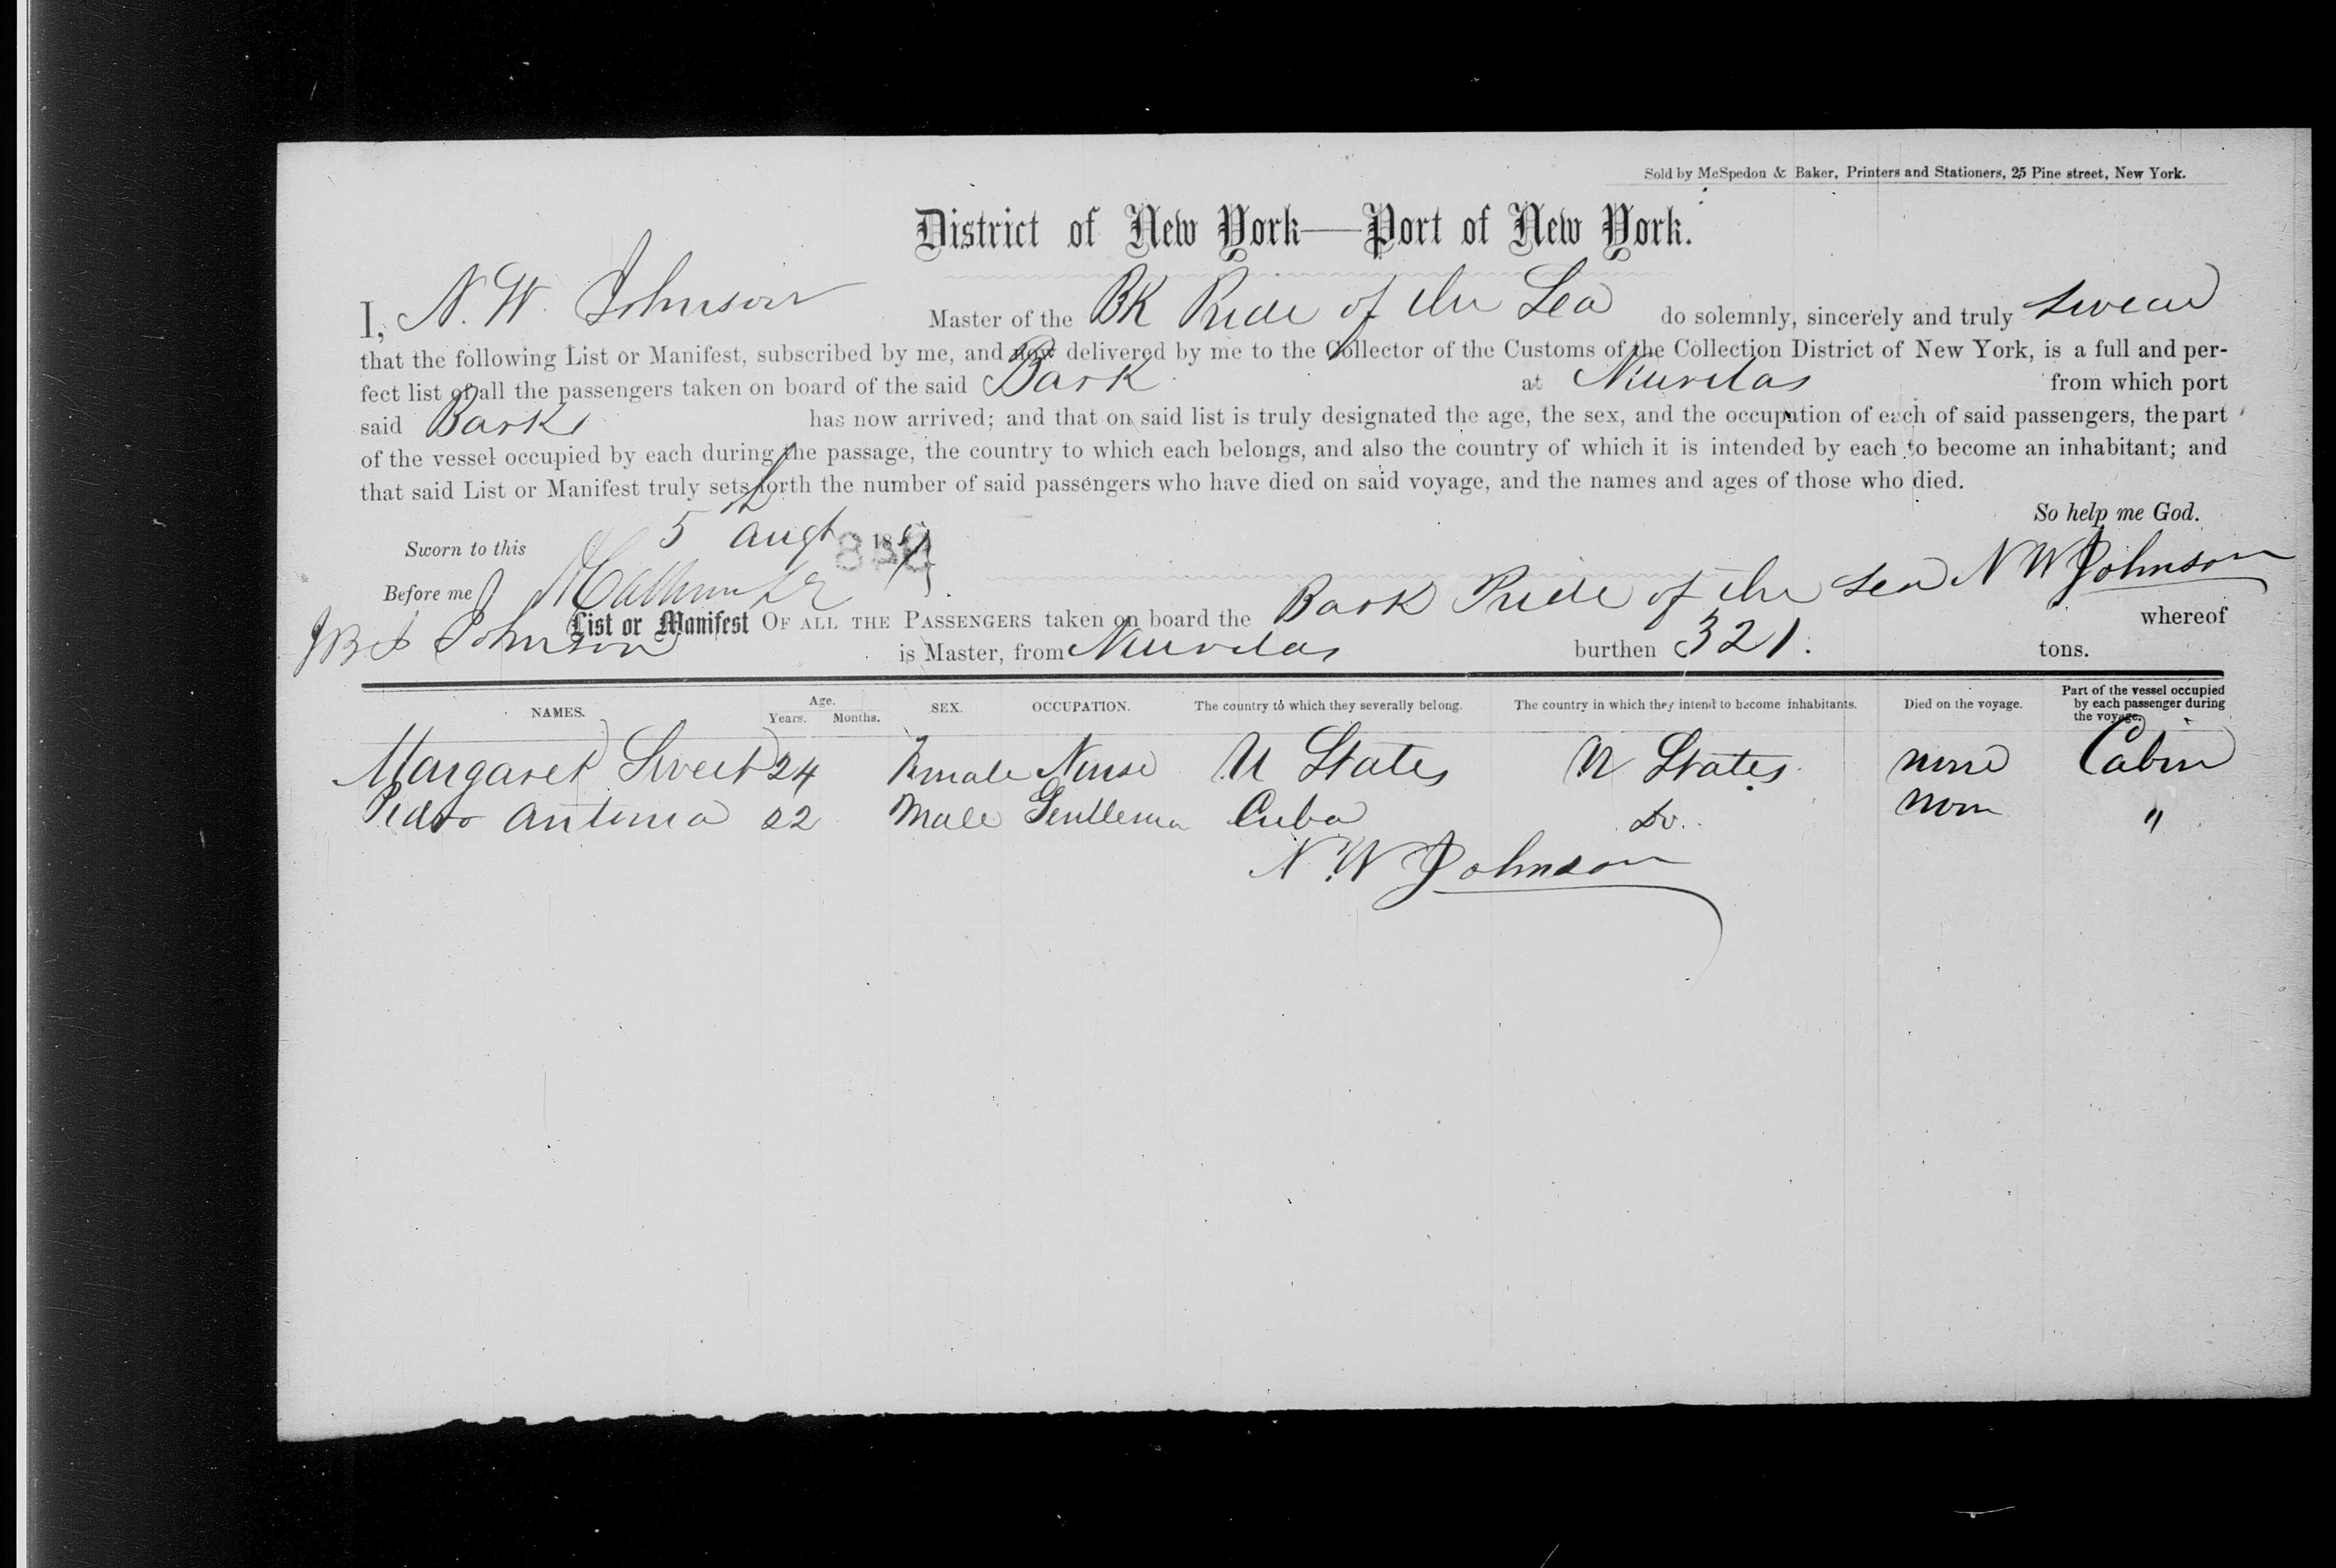 Sold by McSpedon & Baker, Printers and Stationers, 25 Pine street, New York.
District of New York—Port of New York.
I, N. W. Johnson Master of the BK Pride of the Sea do solemnly, sincerely and truly swear
that the following List or Manifest, subscribed by me, and now delivered by me to the Collector of the Customs of the Collection District of New York, is a full and per-
fect list of all the passengers taken on board of the said Bark at Nuevitas from which port
said Bark has now arrived; and that on said list is truly designated the age, the sex, and the occupation of each of said passengers, the part
of the vessel occupied by each during the passage, the country to which each belongs, and also the country of which it is intended by each to become an inhabitant; and
that said List or Manifest truly sets forth the number of said passengers who have died on said voyage, and the names and ages of those who died.
So help me God.
Sworn to this 5 Augt 18
Before me N W Johnson
List or Manifest OF ALL THE PASSENGERS taken on board the Bark Pride of the Sea whereof
Johnson is Master, from Nuevitas burthen 321. tons.
NAMES. Age. Years. Months. SEX. OCCUPATION. The country to which they severally belong. The country in which they intend to become inhabitants. Died on the voyage. Part of the vessel occupied by each passenger during the voyage.
Margaret Sweet 24 Female Nurse U States U States none Cabin
Pedro Antonia 22 Male Gentleman Cuba Do. none "
N. W Johnson